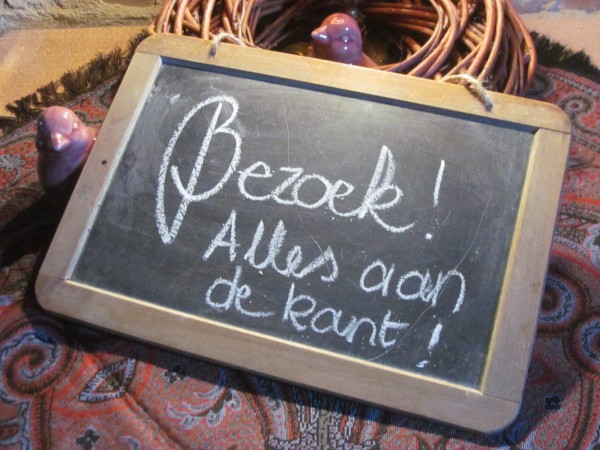 Bezoek!
Alles aan
de kant!